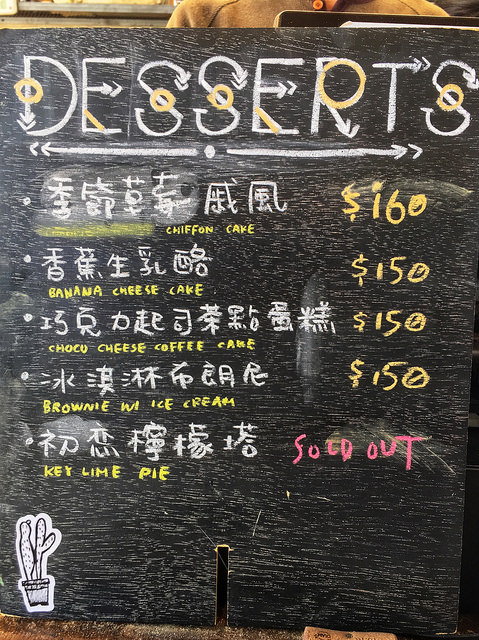 DESSERTS
季節草莓戚風 $160
CHIFFON CAKE
香蕉生乳酪 $150
BANANA CHEESE CAKE
巧克力起司茶點蛋糕 $150
CHOCO CHEESE COFFEE CAKE
冰淇淋布朗尼 $150
BROWNIE W/ ICE CREAM
初恋檸檬塔 SOLD OUT
KEY LIME PIE